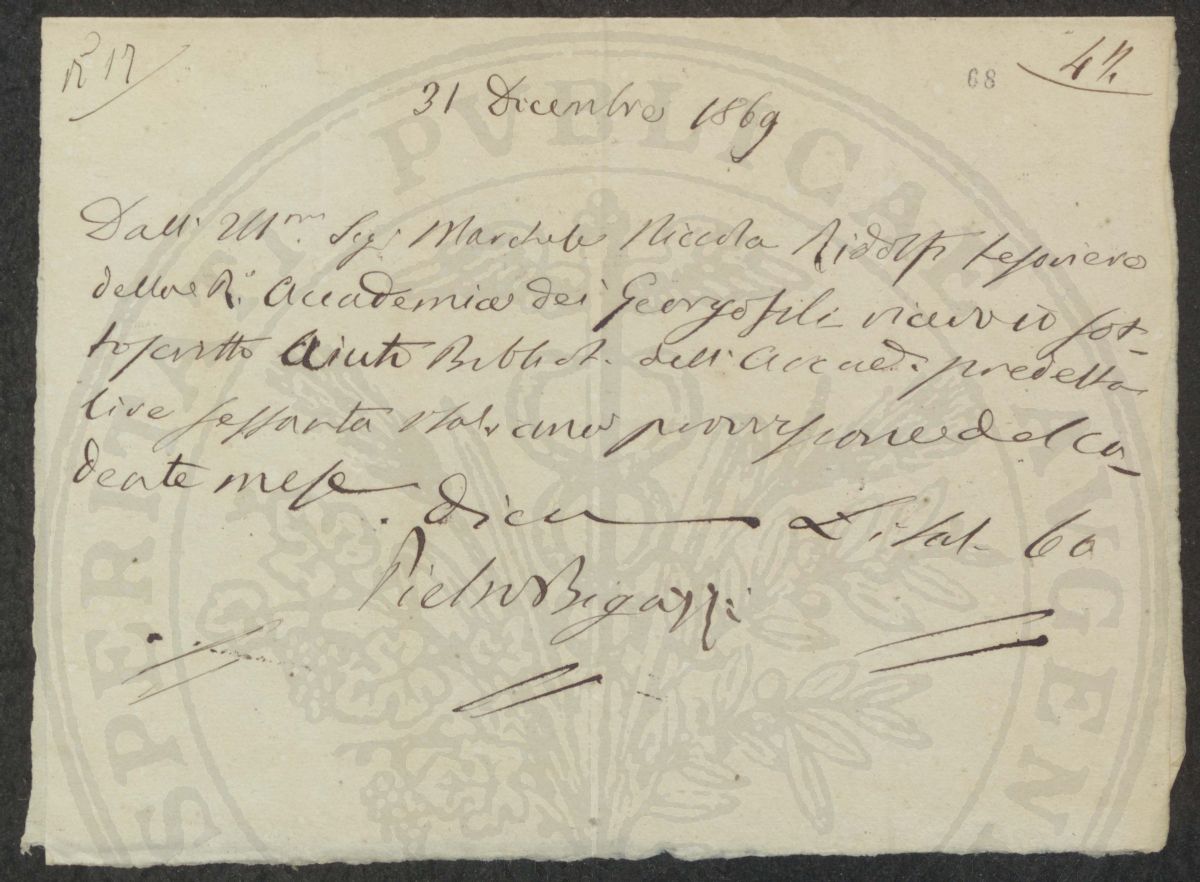 N° 17
68
47
31 Dicembre 1869
Dall' Ill.mo Sig. Marchese Niccola Ridolfi tesoriere
della R. Accademia dei Georgofili ricevo io sot-
toscritto Aiuto Bibliot. dell' Accad. predetta
lire sessanta ital.ane provvisione del ca-
dente mese. Dico L. ital. 60
Pietro Bigazzi
PROSPERITATI PUBLICAE AUGEN